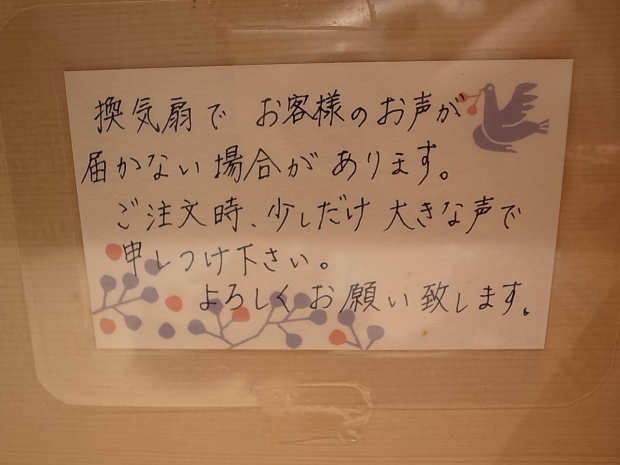 換気扇で お客様のお声が
届かない場合があります。
ご注文時、少しだけ 大きな声で
申しつけ下さい。
よろしくお願い致します。